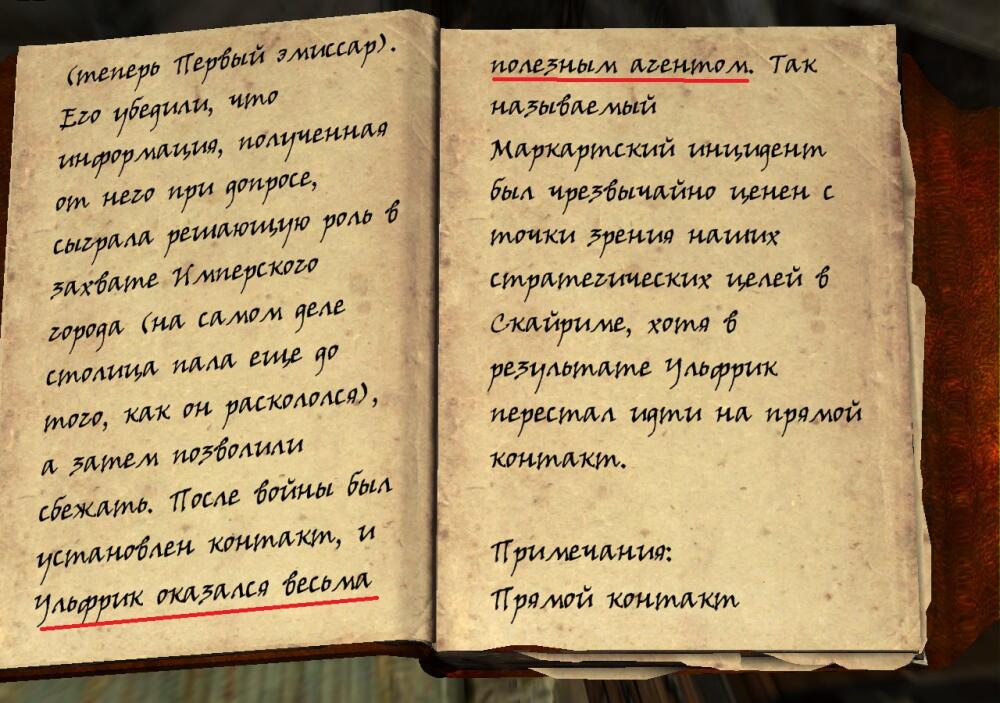 (теперь Первый эмиссар).
Его убедили, что
информация, полученная
от него при допросе,
сыграла решающую роль в
захвате Имперского
города (на самом деле
столица пала еще до
того, как он раскололся),
а затем позволили
сбежать. После войны был
установлен контакт, и
Ульфрик оказался весьма
полезным агентом. Так
называемый
Маркартский инцидент
был чрезвычайно ценен с
точки зрения наших
стратегических целей в
Скайриме, хотя в
результате Ульфрик
перестал идти на прямой
контакт.
Примечания:
Прямой контакт